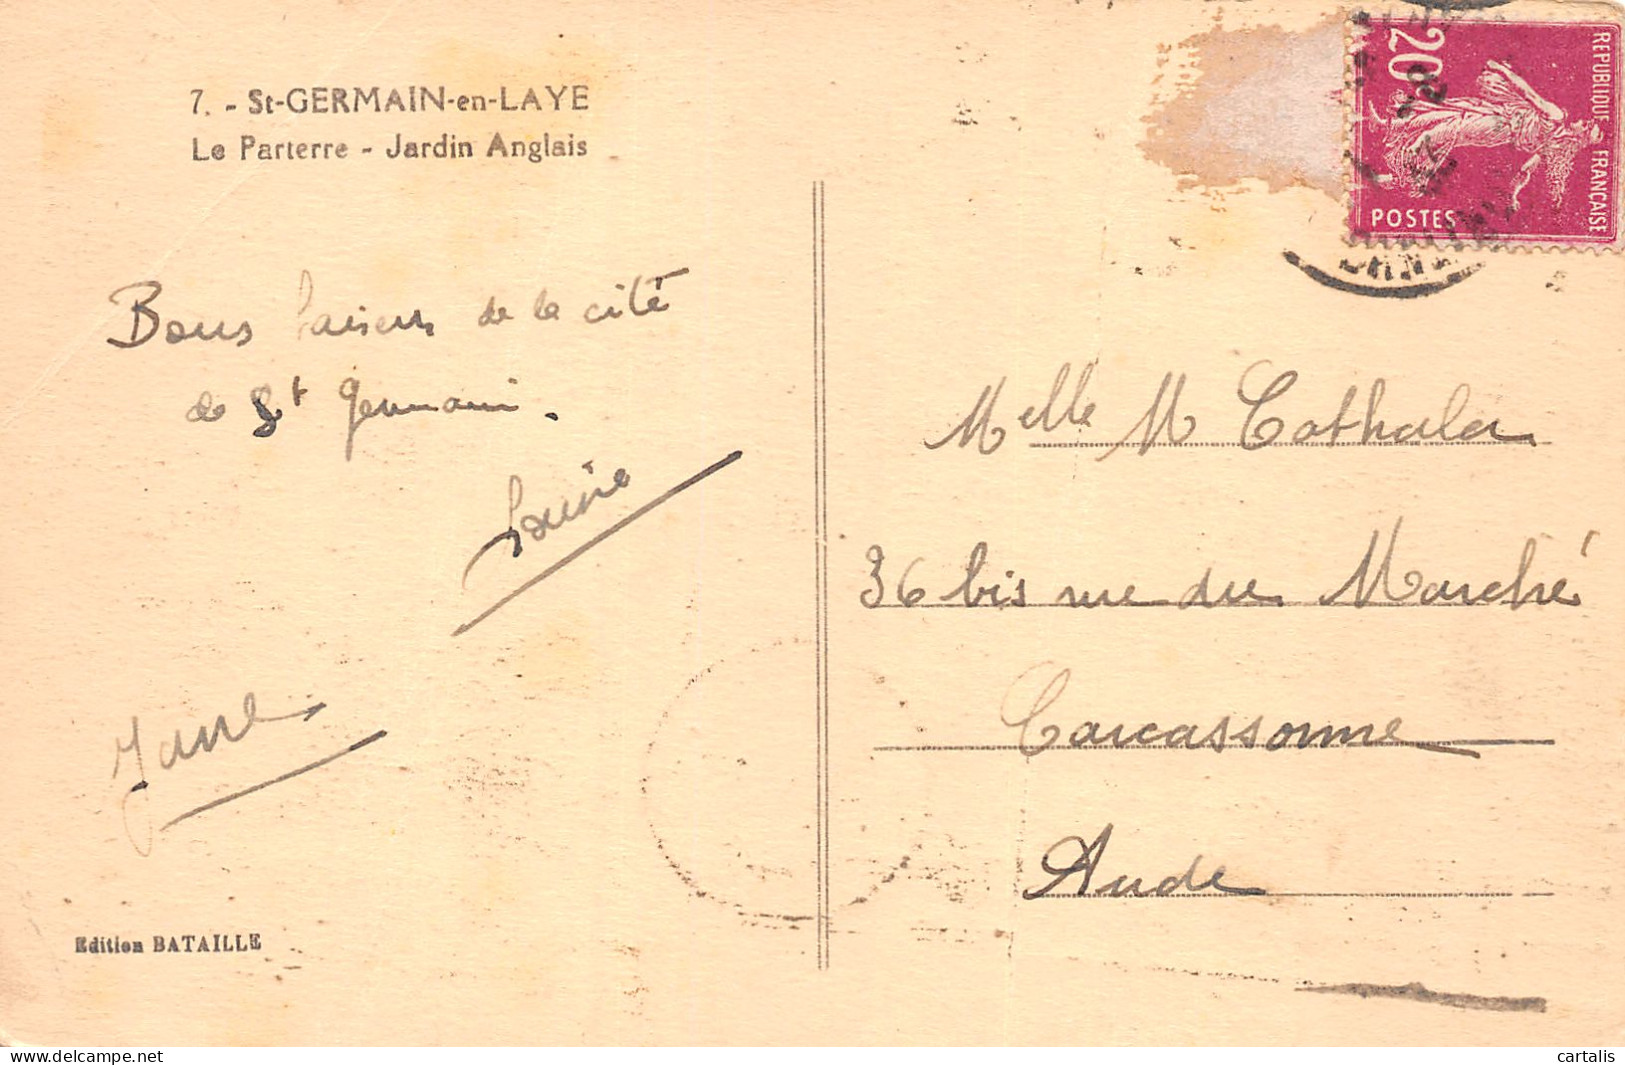 7. - St-GERMAIN-en-LAYE
Le Parterre - Jardin Anglais
Bons baisers de la cité
de St Germain.
Louise
Edition BATAILLE
20
REPUBLIQUE FRANÇAISE
POSTES
Melle M Cathala
36 bis rue du Marché
Carcassonne
Aude
delcampe.net
cartalis